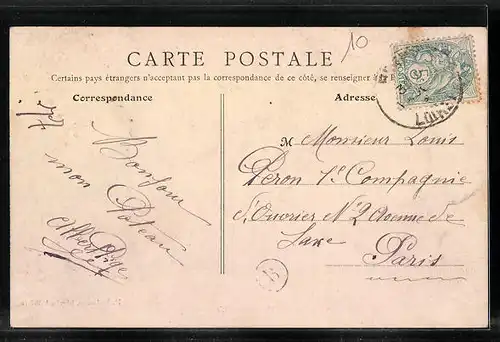 10
CARTE POSTALE
Certains pays étrangers n'acceptant pas la correspondance de ce côté, se renseigner à
Correspondance
Adresse
LOIRET
Bonjour
mon
Poteau
M Monsieur Louis
Peron 1e Compagnie
d'Ouvrier N°2 Avenue de
Saxe
Paris